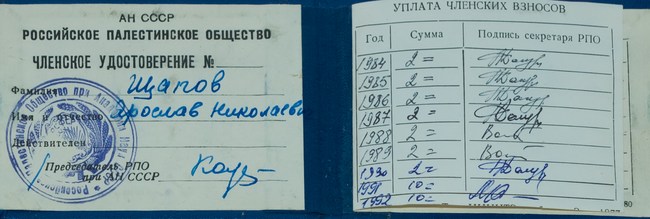 АН СССР
РОССИЙСКОЕ ПАЛЕСТИНСКОЕ ОБЩЕСТВО
ЧЛЕНСКОЕ УДОСТОВЕРЕНИЕ №
Фамилия Щапов
Имя и отчество Ярослав Николаеви
Действителен
Председатель РПО
при АН СССР
УПЛАТА ЧЛЕНСКИХ ВЗНОСОВ
Год Сумма Подпись секретаря РПО
1984 2=
1985 2=
1986 2=
1987 2=
1988 2=
1989 2=
1990 2=
1991 10=
1992 10=
80